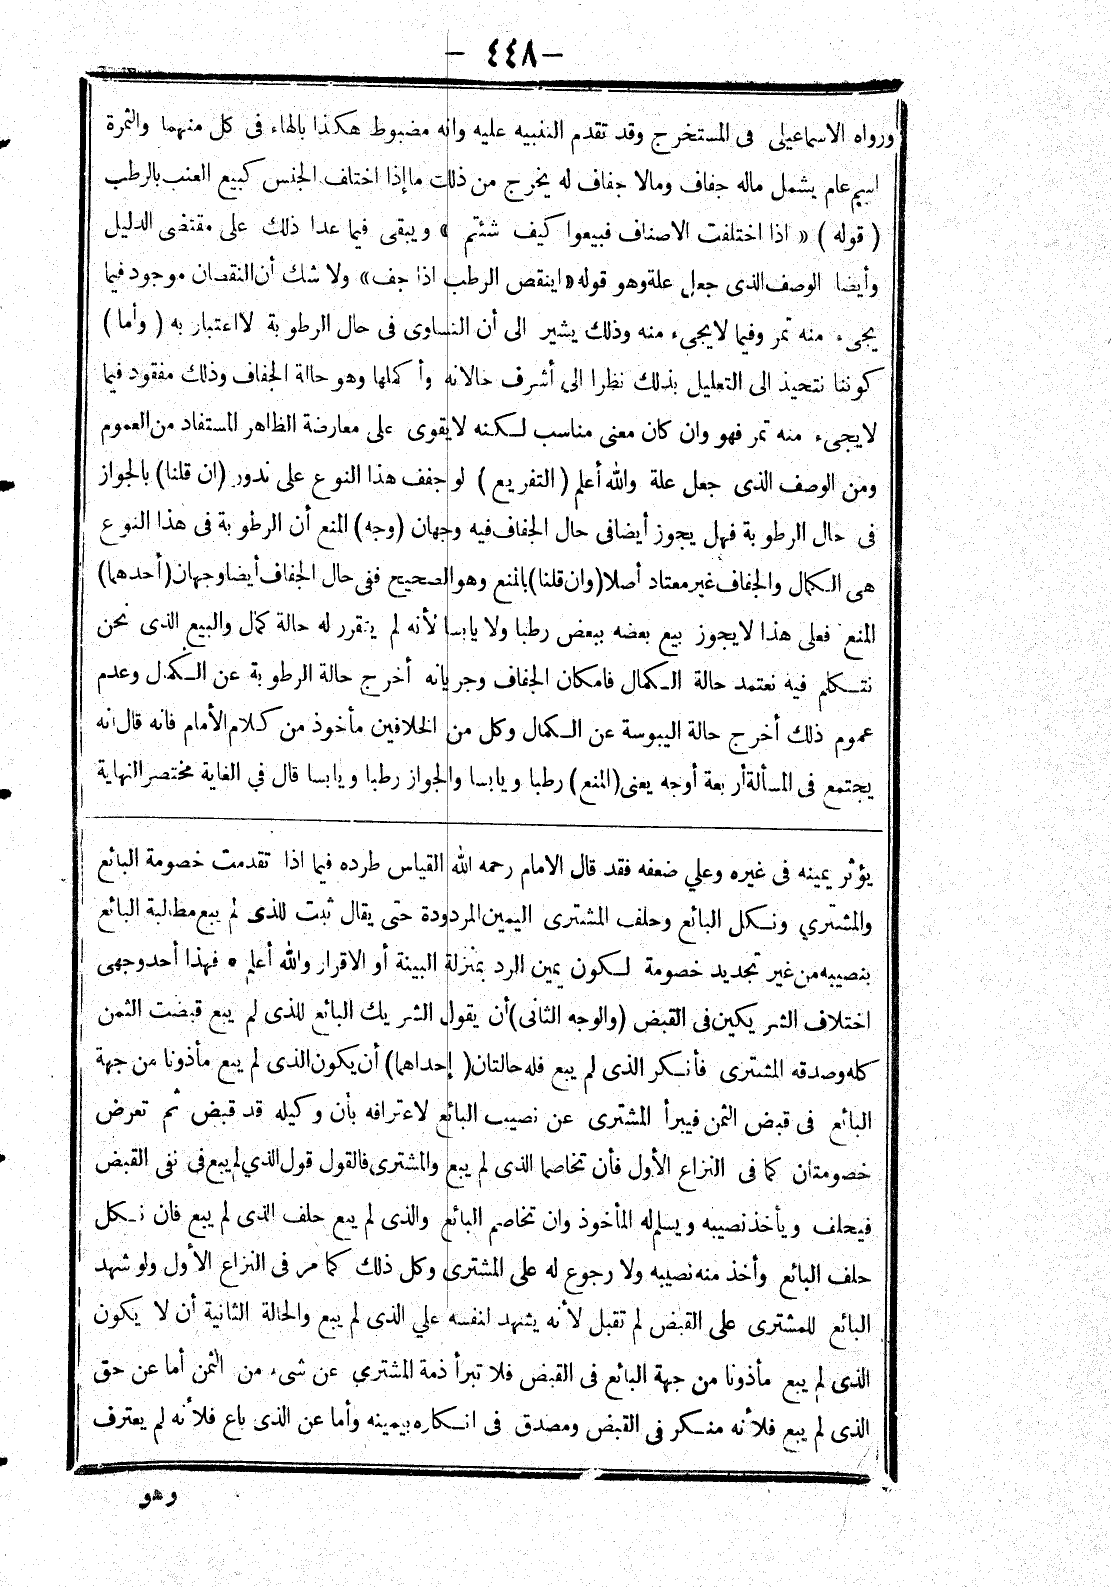 — ٤٤٨ —
ورواه الاسماعيلى فى المستخرج وقد تقدم التنبيه عليه وانه مضبوط هكذا بالهاء فى كل منهما والثمرة
اسم عام يشمل ماله جفاف ومالا جفاف له يخرج من ذلك ما إذا اختلف الجنس كبيع العنب بالرطب
( قوله ) « اذا اختلفت الاصناف فبيعوا كيف شئتم » ويبقى فيما عدا ذلك على مقتضى الدليل
وأيضا الوصف الذى جعل علة وهو قوله « اينقص الرطب اذا جف » ولا شك أن النقصان موجود فيما
يجىء منه تمر وفيما لايجىء منه وذلك يشير الى أن التساوى فى حال الرطوبة لااعتبار به ( وأما )
كوننا نتحيذ الى التعليل بذلك نظرا الى أشرف حالاته وأكملها وهو حالة الجفاف وذلك مفقود فيما
لايجىء منه تمر فهو وان كان معنى مناسب لكنه لايقوى على معارضة الظاهر المستفاد من العموم
ومن الوصف الذى جعل علة والله أعلم ( التفريع ) لو جفف هذا النوع على ندور (ان قلنا) بالجواز
فى حال الرطوبة فهل يجوز أيضا فى حال الجفاف فيه وجهان (وجه) المنع أن الرطوبة فى هذا النوع
هى الكمال والجفاف غير معتاد أصلا (وان قلنا) بالمنع وهو الصحيح ففى حال الجفاف أيضا وجهان (أحدهما)
المنع فعلى هذا لايجوز بيع بعضه ببعض رطبا ولا يابسا لأنه لم يتقرر له حالة كمال والبيع الذى نحن
نتكلم فيه نعتمد حالة الكمال فامكان الجفاف وجريانه أخرج حالة الرطوبة عن الكمال وعدم
عموم ذلك أخرج حالة اليبوسة عن الكمال وكل من الخلافين مأخوذ من كلام الأمام فانه قال انه
يجتمع فى المسألة أربعة أوجه يعنى (المنع) رطبا ويابسا والجواز رطبا ويابسا قال في الغاية مختصر النهاية
يؤثر يمينه فى غيره وعلي ضعفه فقد قال الامام رحمه الله القياس طرده فيما اذا تقدمت خصومة البائع
والمشتري ونكل البائع وحلف المشترى اليمين المردودة حتى يقال ثبت للذى لم يبع مطالبة البائع
بنصيبه من غير تجديد خصومة لكون يمين الرد بمنزلة البينة أو الاقرار والله أعلم * فهذا أحد وجهى
اختلاف الشريكين فى القبض (والوجه الثانى) أن يقول الشريك البائع للذى لم يبع قبضت الثمن
كله وصدقه المشترى فأنكر الذى لم يبع فله حالتان (إحداهما) أن يكون الذى لم يبع مأذونا من جهة
البائع فى قبض الثمن فيبرأ المشترى عن نصيب البائع لاعترافه بأن وكيله قد قبض ثم تعرض
خصومتان كما فى النزاع الأول فأن تخاصما الذى لم يبع والمشترى فالقول قول الذي لم يبع فى نفى القبض
فيحلف ويأخذ نصيبه ويسلم له المأخوذ وان تخاصم البائع والذى لم يبع حلف الذى لم يبع فان نكل
حلف البائع وأخذ منه نصيبه ولا رجوع له على المشترى وكل ذلك كما مر فى النزاع الأول ولو شهد
البائع للمشترى على القبض لم تقبل لأنه يشهد لنفسه علي الذى لم يبع والحالة الثانية أن لا يكون
الذى لم يبع مأذونا من جهة البائع فى القبض فلا تبرأ ذمة المشتري عن شىء من الثمن أما عن حق
الذى لم يبع فلأنه منكر في القبض ومصدق فى انكاره بيمينه وأما عن الذى باع فلأنه لم يعترف
وهو